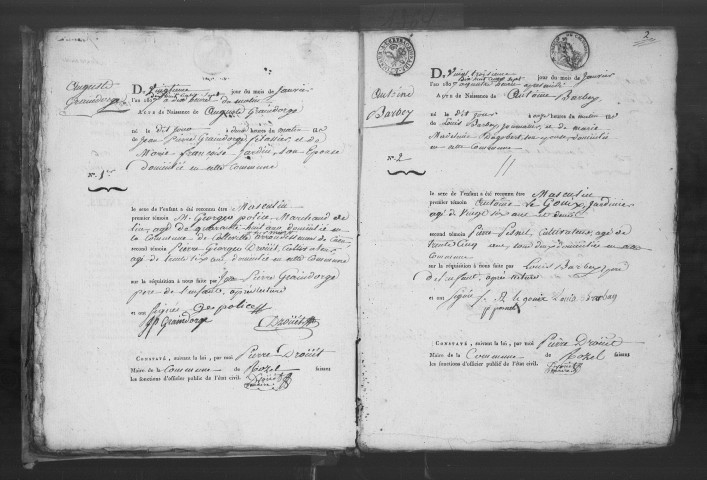 Auguste
Graindorge
Du Vingtième jour du mois de Janvier
l'an 18 à dix heures du matin
Acte de Naissance de Auguste Graindorge
né le dit jour à heures du matin
de Jean Pierre Graindorge et de
Marie Françoise Jardin, son Epouse
domicilié en cette Commune
N.° 1er
le sexe de l'enfant a été reconnu être Masculin
premier témoin M. Georges police Marchand de
agé de quarante huit ans domicilié en
la Commune de Colleville arrondissement de Caen
second témoin Pierre Georges Droüet, Cultivateur,
agé de trente six ans, domicilié en cette Commune
sur la réquisition à nous faite par Jean Pierre Graindorge
pere de l'enfant, après lecture
et ont signés G police
JP Graindorge Droüet
Constaté, suivant la loi, par moi Pierre Droüet
Maire de la Commune de faisant
les fonctions d'officier public de l'état civil.
2
Antoine
Barbey
Du Vingt troisième jour du mois de Janvier
l'an 18 à quatre heures après midi
Acte de Naissance de Antoine Barbey
né le dit jour à onze heures du matin
de Louis Barbey journalier, et de marie
Madeleine son épouse, domicilié
en cette Commune
N.° 2
le sexe de l'enfant a été reconnu être Masculin
premier témoin Le Gouix, Jardinier
agé de Vingt six ans et demi
second témoin Pierre Pesnel, Cultivateur, agé de
trente Cinq ans, tous deux domiciliés en cette
Commune
sur la réquisition à nous faite par Louis Barbey, pere
de l'enfant, après lecture
et ont signé J. B. le gouix Louis Barbey
p pesnel
Constaté, suivant la loi, par moi Pierre Droüet
Maire de la Commune de faisant
les fonctions d'officier public de l'état civil.